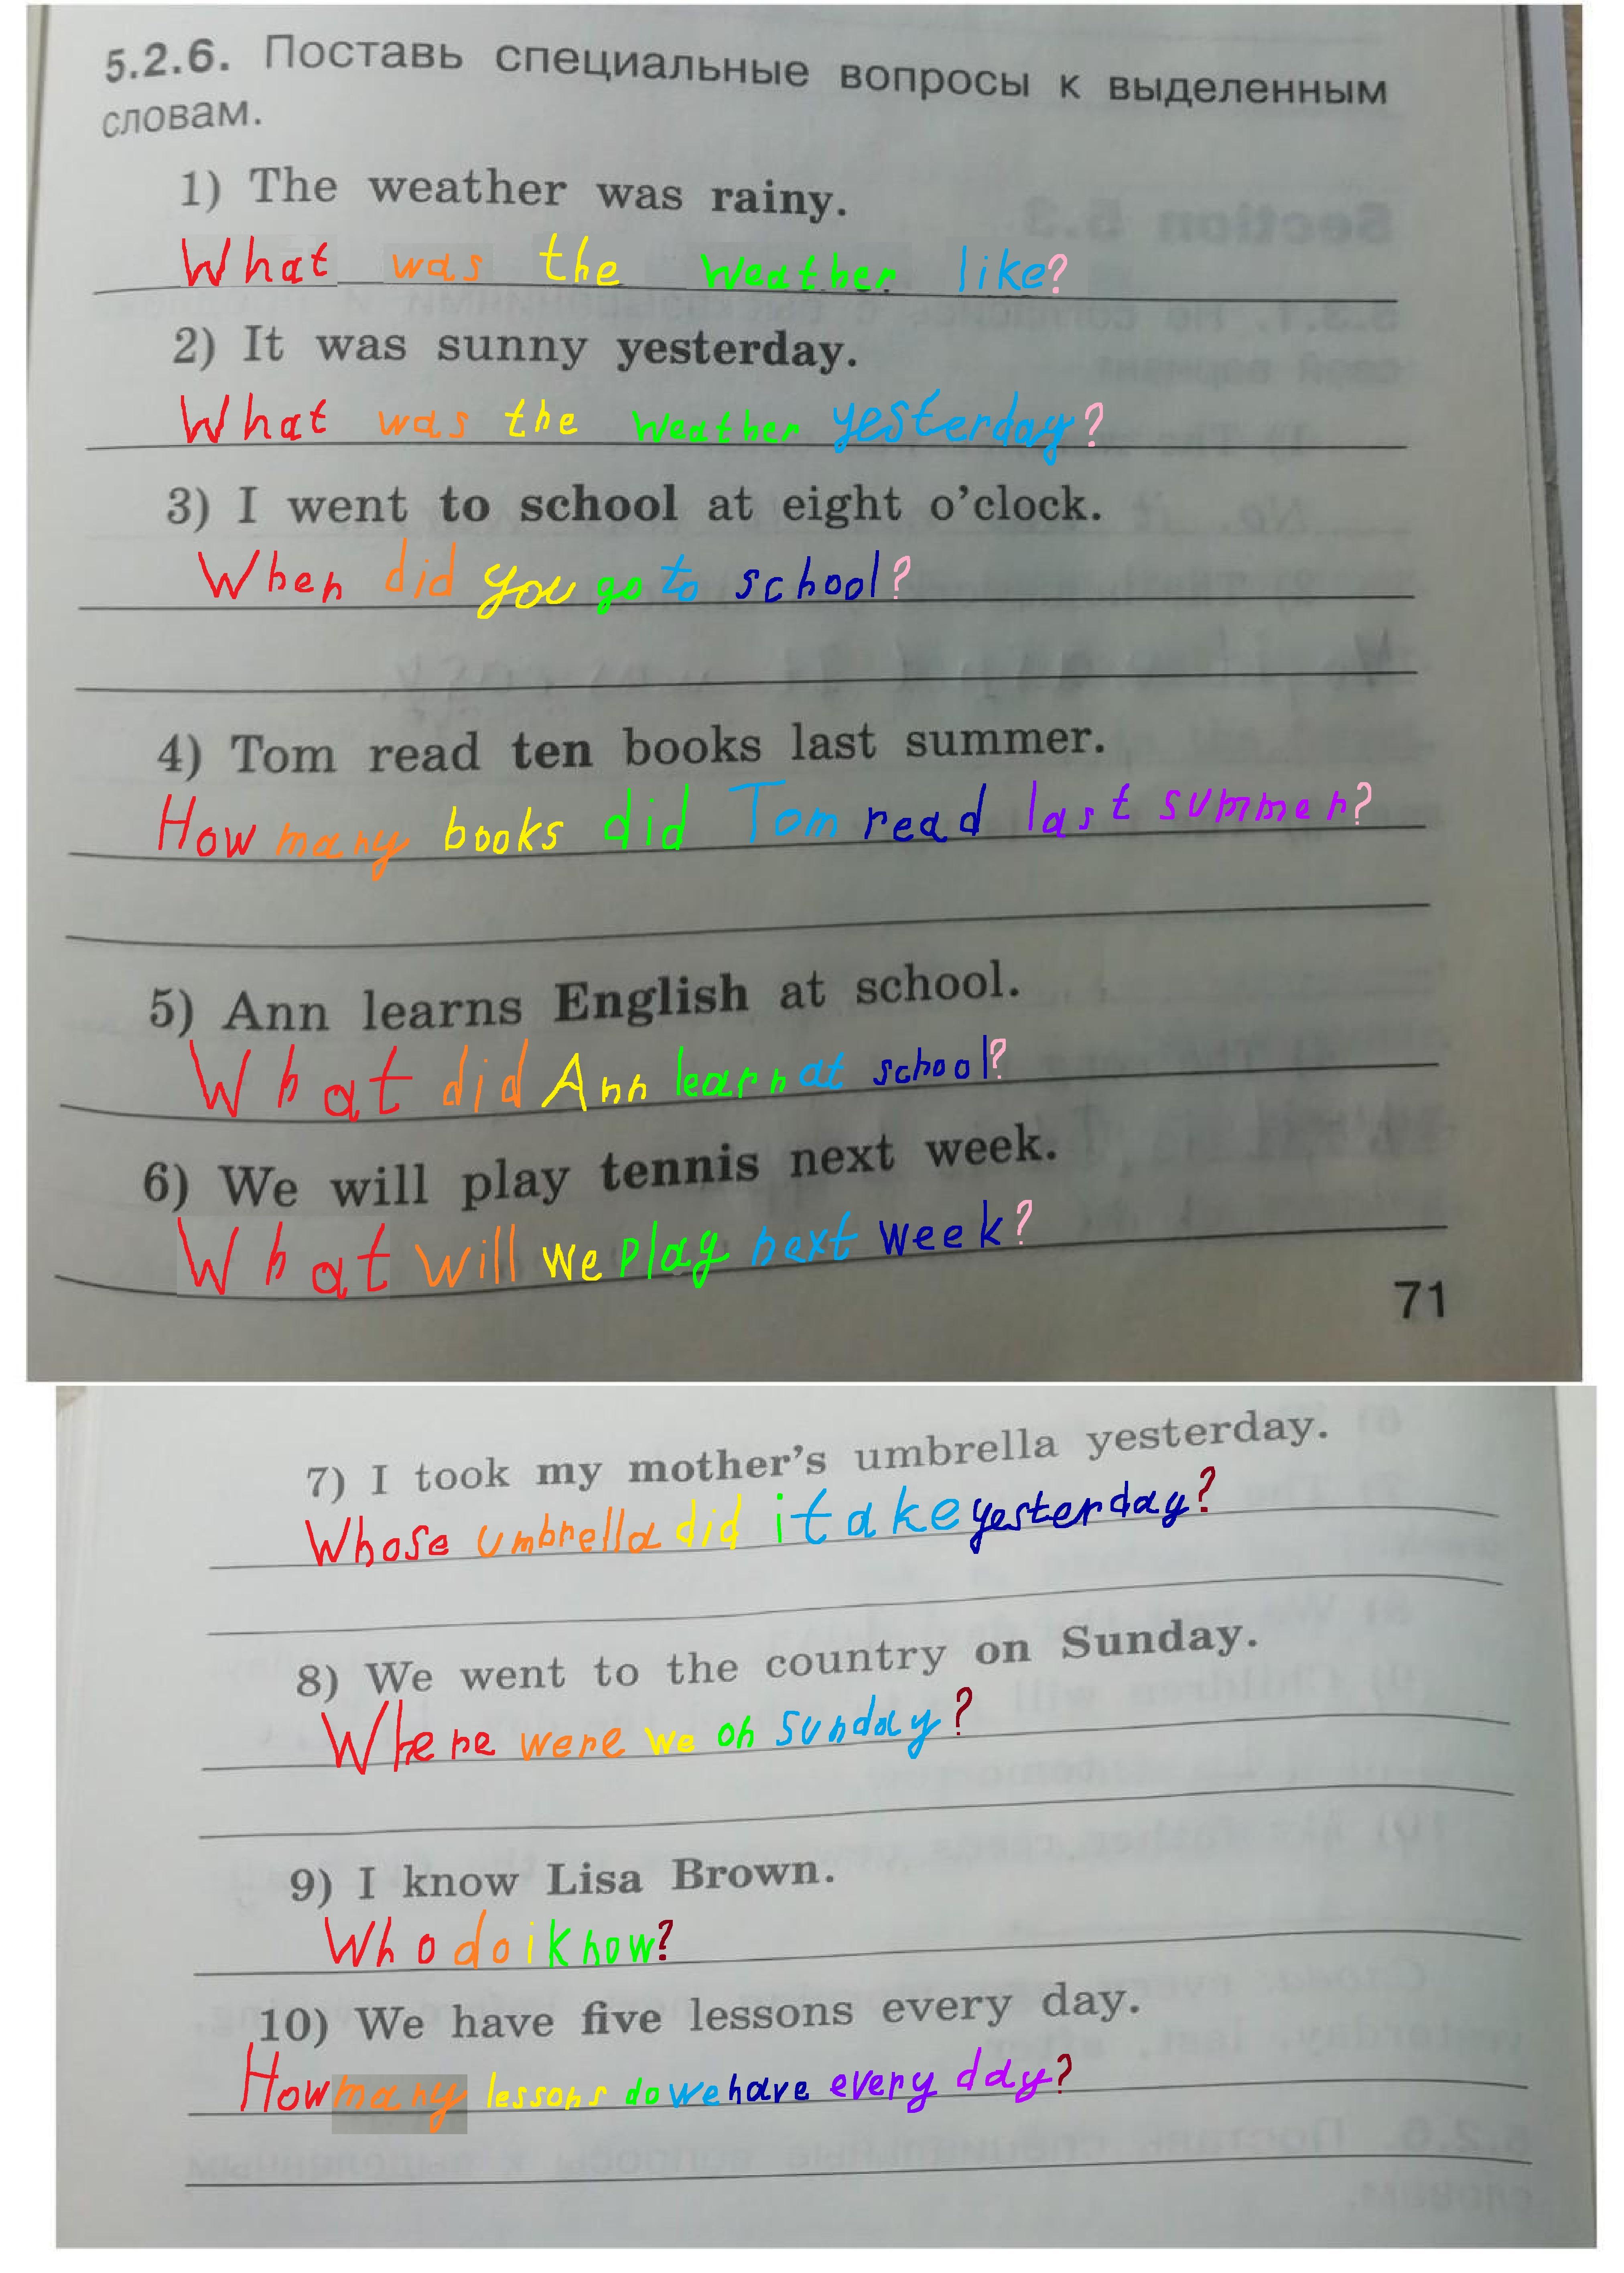 5.2.6. Поставь специальные вопросы к выделенным
словам.
1) The weather was rainy.
What was the weather like?
2) It was sunny yesterday.
What was the weather yesterday?
3) I went to school at eight o'clock.
When did you go to school?
4) Tom read ten books last summer.
How many books did Tom read last summer?
5) Ann learns English at school.
What did Ann learn at school?
6) We will play tennis next week.
What will we play next week?
71
7) I took my mother's umbrella yesterday.
Whose umbrella did i take yesterday?
8) We went to the country on Sunday.
Where were we on sunday?
9) I know Lisa Brown.
Who do i know?
10) We have five lessons every day.
How many lessons do we have every day?